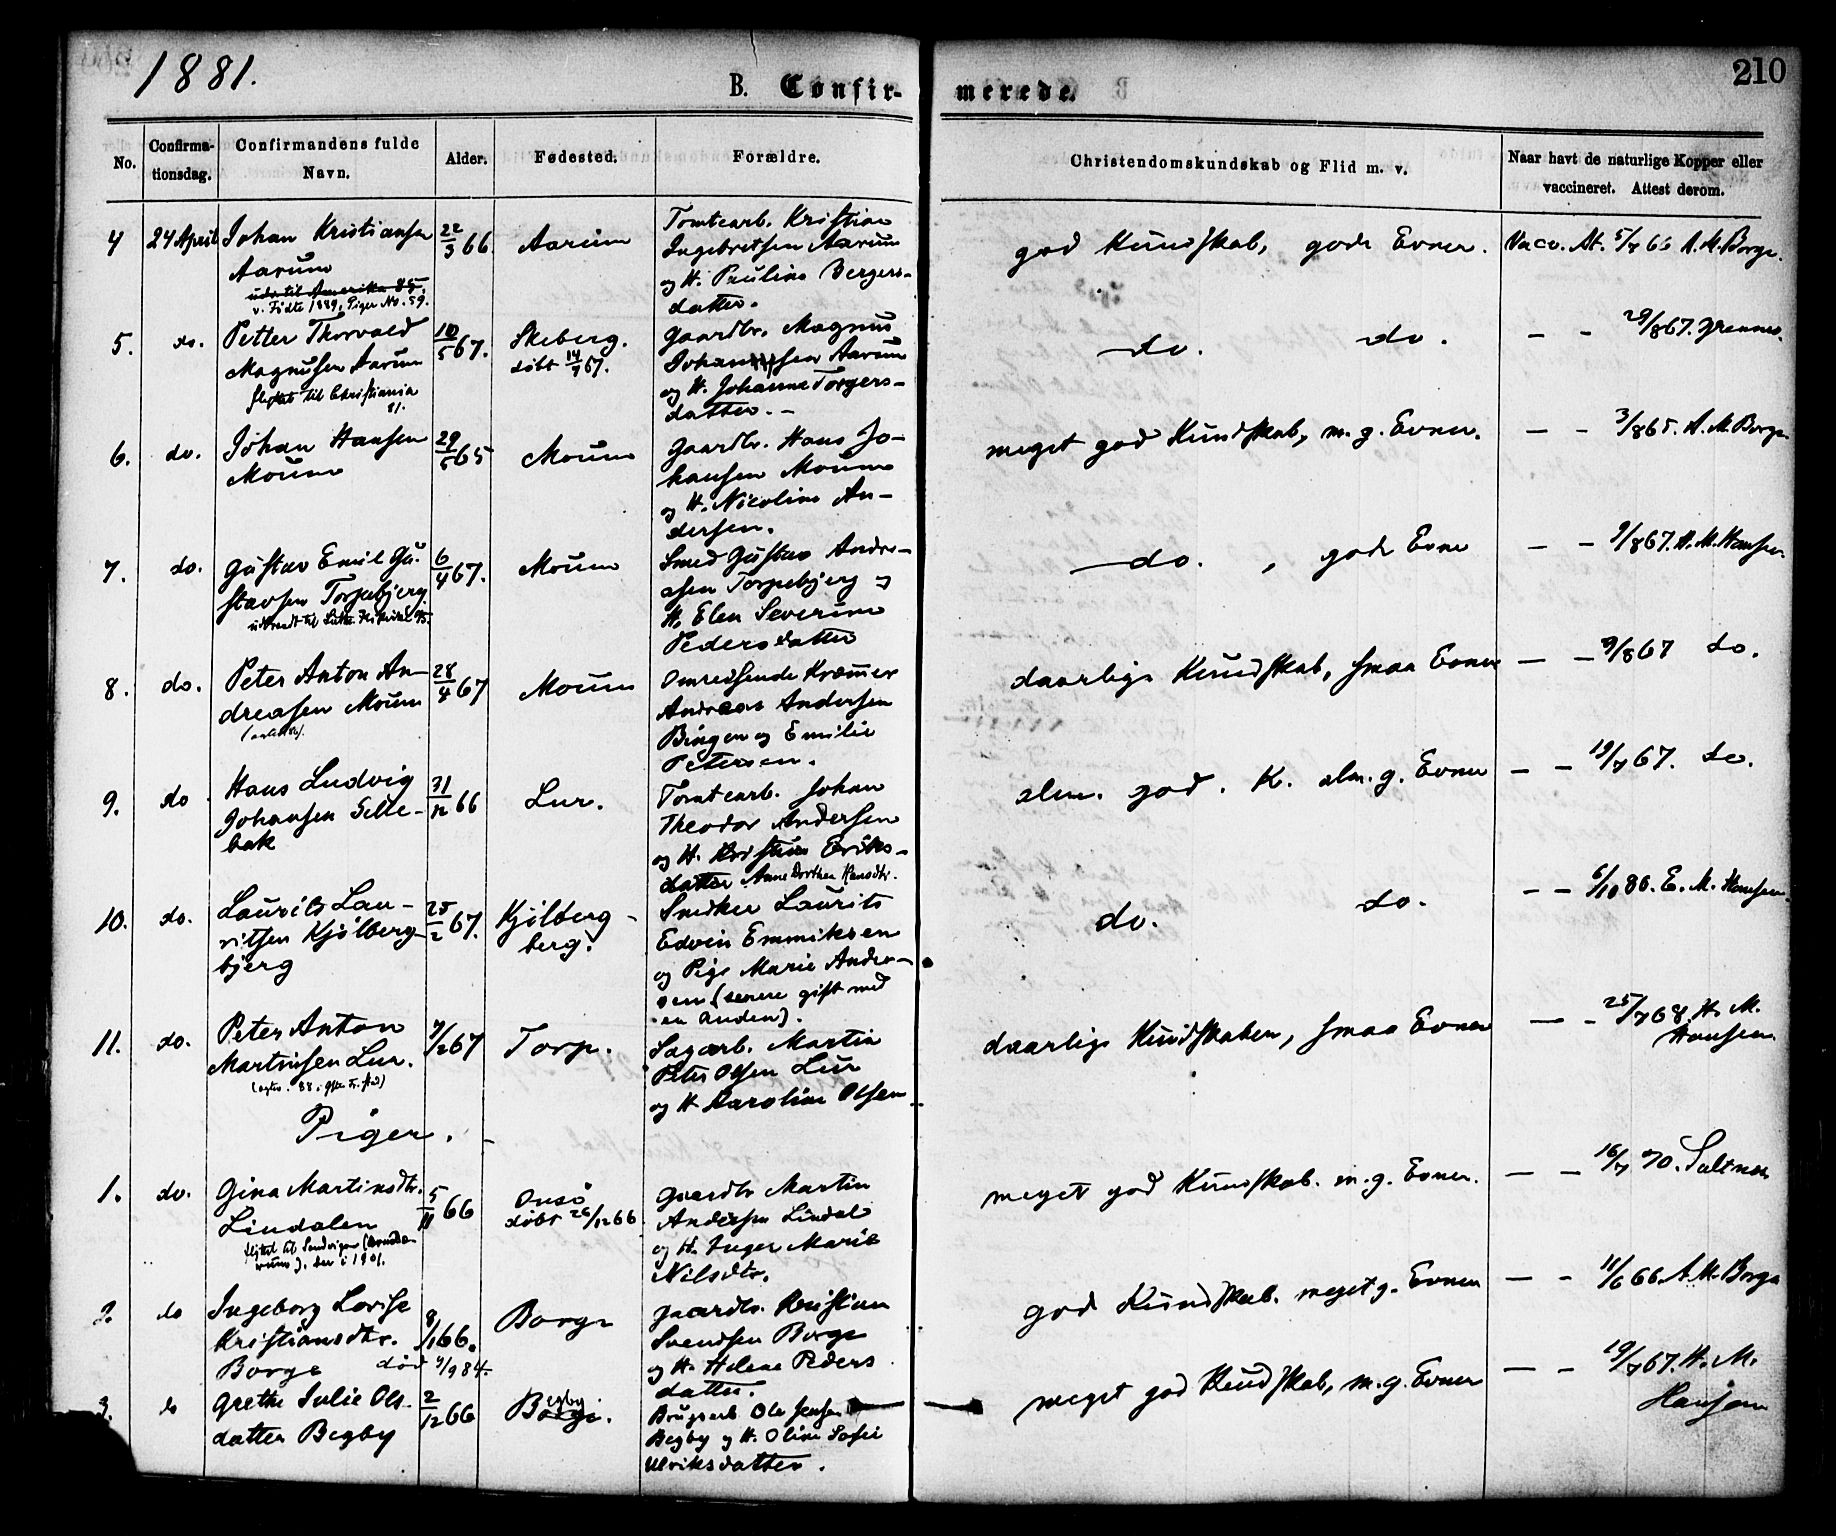 1881.
210
B. Confirmerede.
No. Confirmationsdag. Confirmandens fulde Navn. Alder. Fødested. Forældre. Christendomskundskab og Flid m. v. Naar havt de naturlige Kopper eller vaccineret. Attest derom.
4 24 April Johan Kristiansen 22/3 66. Aarum Tomtearb. Kristian god Kundskab, gode Evner. Vacc. At. 5/7 66 A. M. Borge.
Aarum Ingebretsen Aarum
udv. til Amerika 85. og H. Pauline Bergers-
v. Fødte 1889, Piger No. 59. datter.
5. do. Petter Thorvald 10/5 67. Skeberg. Gaardbr. Magnus do. do. — — 29/8 67.
Magnusen Aarum døbt 14/7 67. Johannesen Aarum
flyttet til Christiania og H. Johanne Torgers-
81. datter. —
6. do. Johan Hansen 29/5 65 Moum Gaardbr. Hans Jo- meget god Kundskab, m. g. Evner. — — 3/8 65. A. M. Borge.
Moum hansen Moum
og H. Nicoline An-
dersen.
7. do. Gustav Emil Gu- 6/4 67. Moum Smed Gustav Andre- do. , gode Evne — — 9/8 67. H. M. Hansen.
stavsen Torpebjerg asen Torpebjerg og
H. Elen Severine
Pedersdatter
8. do. Peter Anton An- 28/4 67 Moum Omreisende Kræmer daarlige Kundskab, smaa Evner — — 9/8 67 do.
dreasen Moum Andreas Andersen
Bingen og Emilie
Petersen.
9. do. Hans Ludvig 31/12 66 Lur. Tomtearb. Johan alm. god. K. alm. g. Evner — — 19/7 67. do.
Johansen Selle- Theodor Andersen
bak og H. Kristine Eriks-
datter Anne Dorthea Hansdtr.
10. do. Laurits Lau- 25/2 67. Kjølberg- Snedker Laurits do. do. — — 6/10 80. E. M. Hansen.
ritsen Kjølberg- berg. Edvin Emmiksen
bjerg og Pige Marie Ander-
sen (senere gift med
en anden).
11. do. Peter Anton 7/12 67 Torp. Sagarb. Martin daarlige Kundskaber, smaa Evner — — 25/7 68. H. M.
Martinsen Lur. Peter Olsen Lur Hansen.
og H. Karoline Olsen
Piger.
1. do. Gina Martinsdtr. 5/11 66 Onsø Gaardbr Martin meget god Kundskab. m. g. Evner. — — 16/7 70. Saltnes
Lindalen døbt 26/12 66 Andersen Lindal
og H. Inger Marie
der i 1901. Nilsdtr.
2. do Ingeborg Lovise 8/1 66. Borge Gaardbr. Kristian god Kundskab. meget g. Evner — — 11/6 66. A. M. Borge
Kristiansdtr. Svendsen Borge
Borge død 9/9 84. og H. Helene Peders
datter.
3. do Grethe Julie Ols- 2/12 66 Begby Brugsarb Ole Jensen meget god Kundskab, m. g. Evner — — 19/7 67. H. M.
datter Begby Borge. Begby og H. Oline Sofie Hansen
Ulriksdatter.